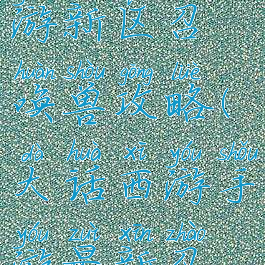 游新区召
huàn shòu gōng lüè
唤兽攻略(
dà huà xī yóu shǒu
大话西游手
yóu zuì xīn zhào
游最新召